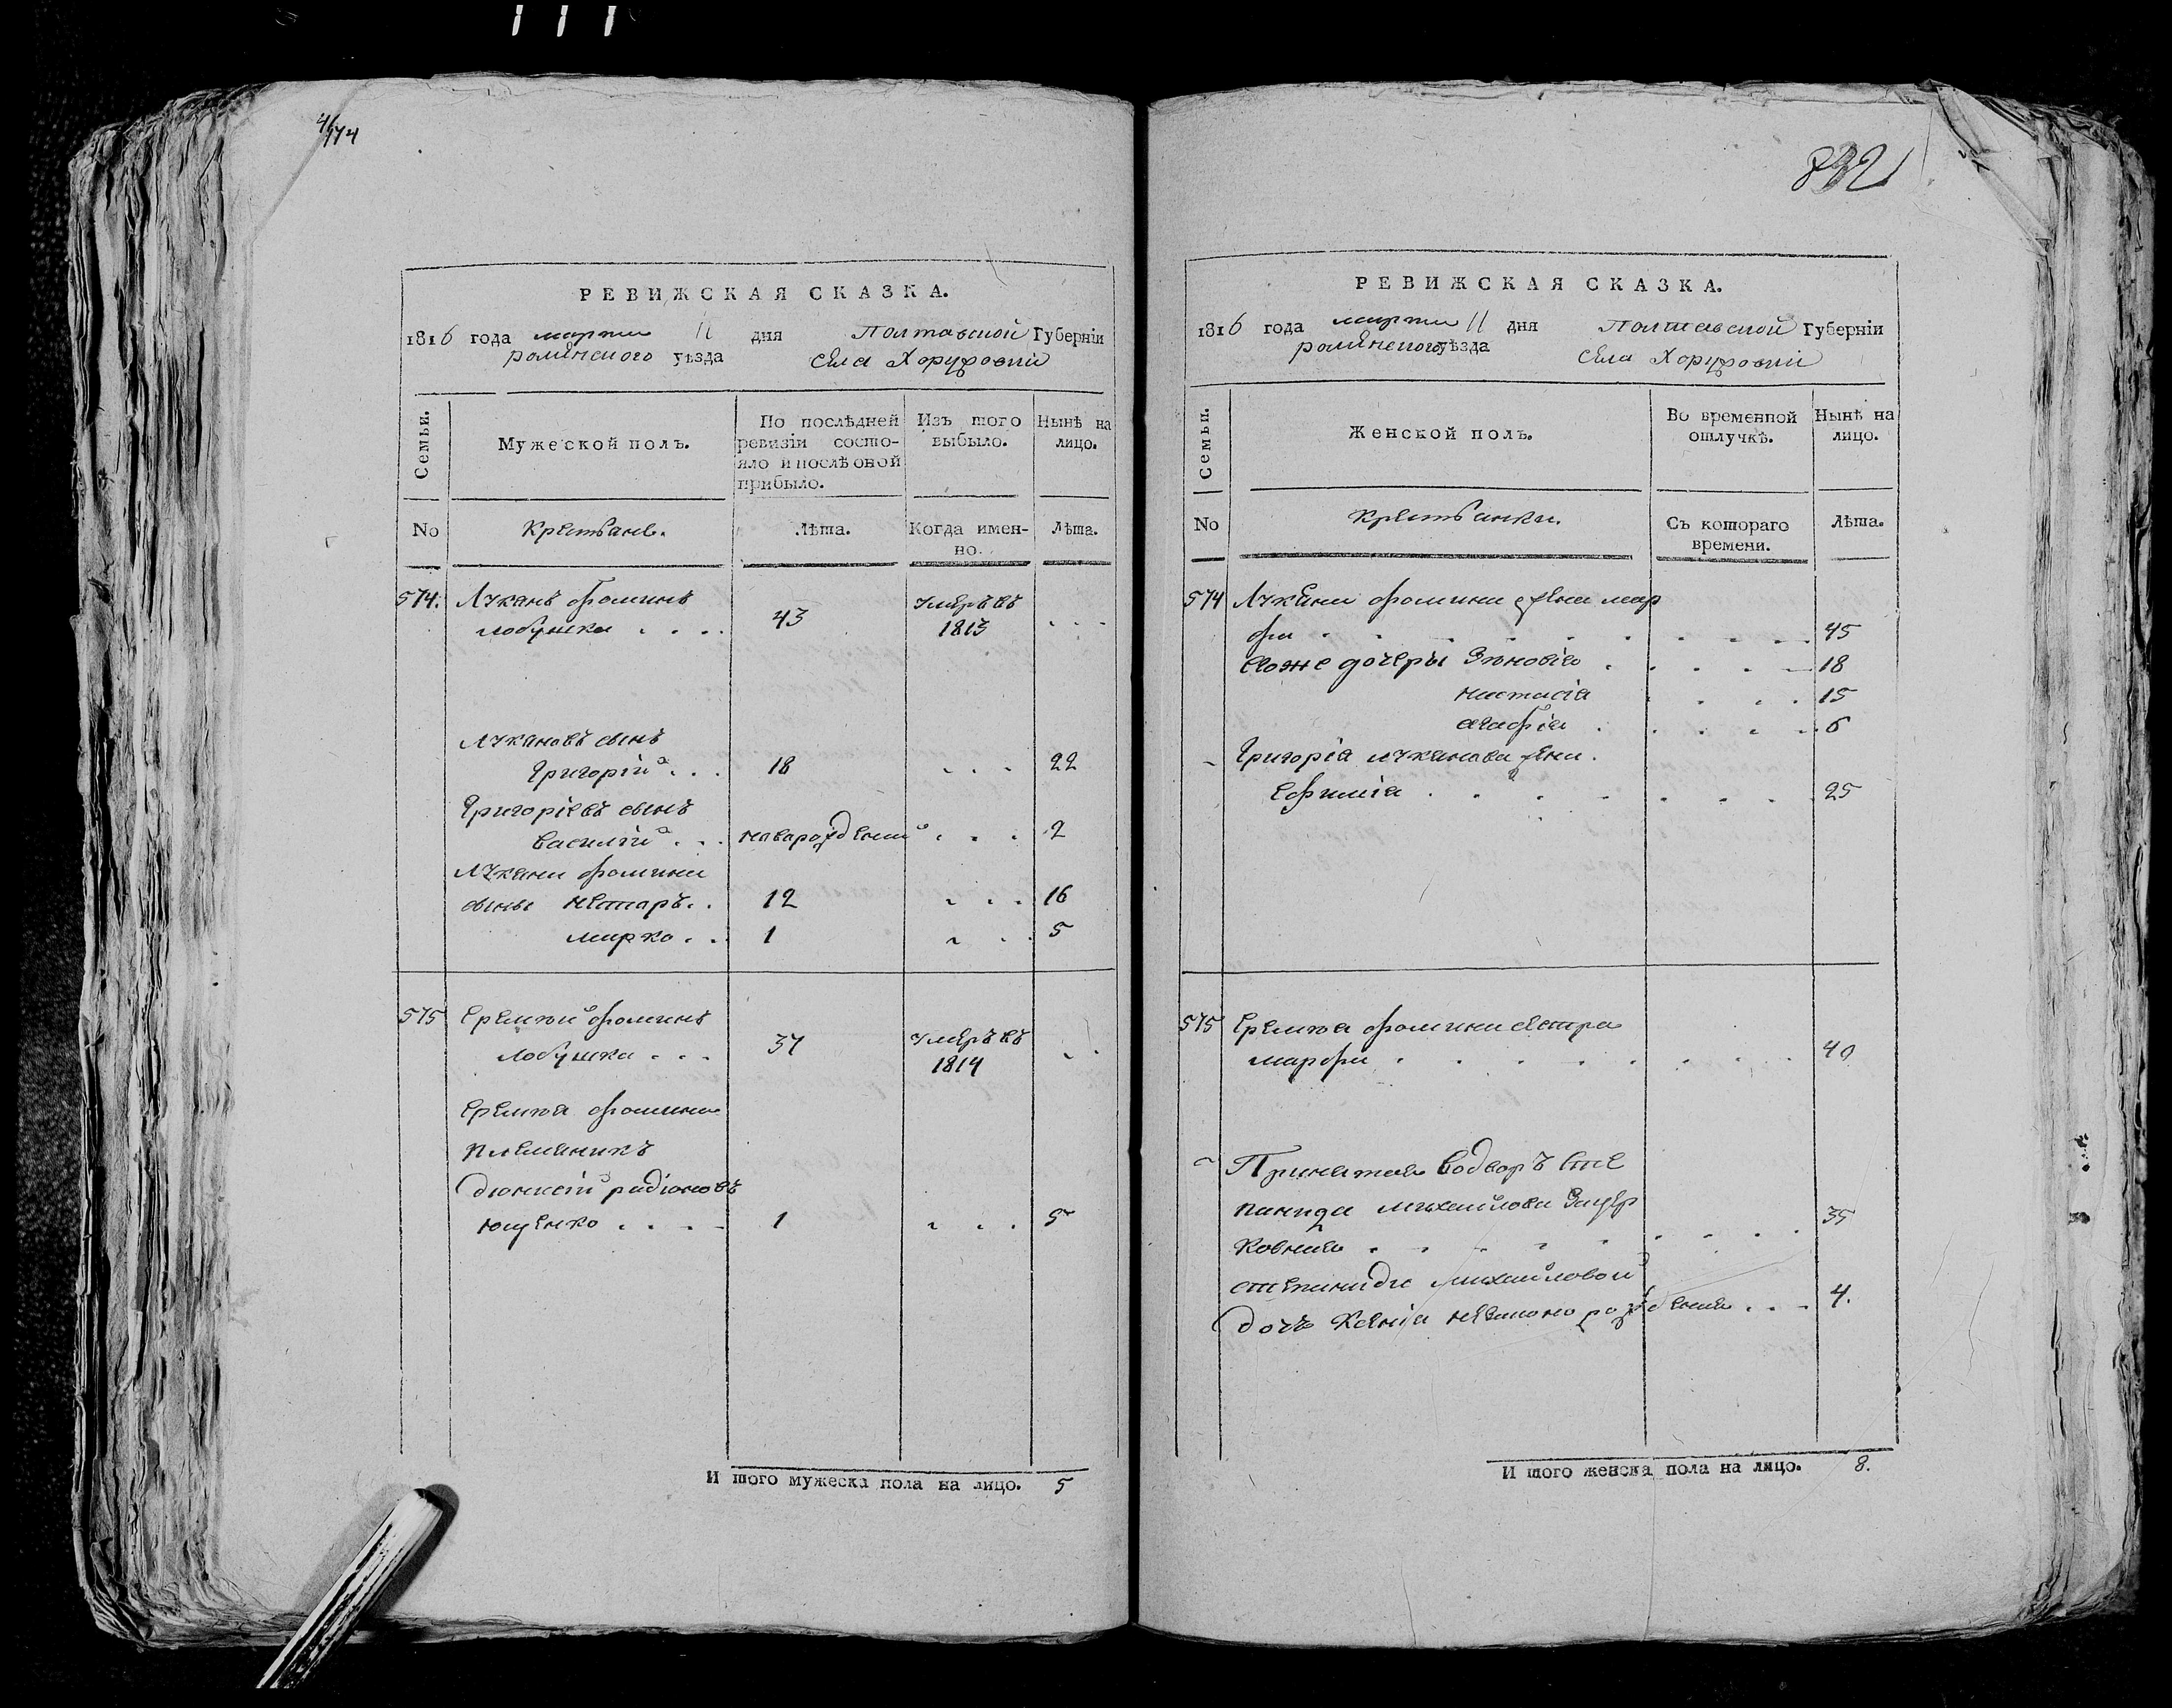 832
РЕВИЖСКАЯ СКАЗКА.
1816 года марта 11 дня Полтавской Губерніи
роменского уѣзда села Хоружовки
Семьи.
Мужеской полъ.
По послѣдней ревизіи состо-
яло и послѣ оной
прибыло.
Изъ того
выбыло.
Нынѣ на
лицо.
No
Крестьяне.
Лѣта.
Когда имен-
но.
Лѣта.
574.
Лукянъ фоминъ
лобушка . . . . 43 умеръ въ 1813 . . .
Лукяновъ сынъ
Григорій . . . 18 . . . 22
Григоріевъ сынъ
василій . . . новарожденій . . . 2
Лукяна фомина
сыны Нестаръ . . 12 . . . 16
марко . . . 1 . . 5
575
Еремѣй фоминъ
лобушка . . . 37 умеръ въ 1814 . .
Еремѣя фомина
племаникъ
дионисій радіоновъ
ющенко . . . . 1 . . . 5
И того мужеска пола на лицо. 5
РЕВИЖСКАЯ СКАЗКА.
1816 года марта 11 дня Полтавской Губерніи
роменского уѣзда села Хоружовки
Семьи.
Женской полъ.
Во временной
отлучкѣ.
Нынѣ на
лицо.
No
Крестьянки.
Съ котораго
времени.
Лѣта.
574
Лукяна фомина жена мар
фа . . . . . . . . . 45
Егоже дочеры Зѣновія . . . . 18
настасія . . . . 15
агафія . . . . . 6
Григорія лукянова жена
Ефимія . . . . . . . 25
575
Еремѣя фомина сестра
марфа . . . . . . . . 40
Принятая водворъ сте
панида михайлова
ковная . . . . . . . . 35
степаниды михайловой
дочъ Ксенія незаконо рожденая . . . 4.
И того женска пола на лицо. 8.